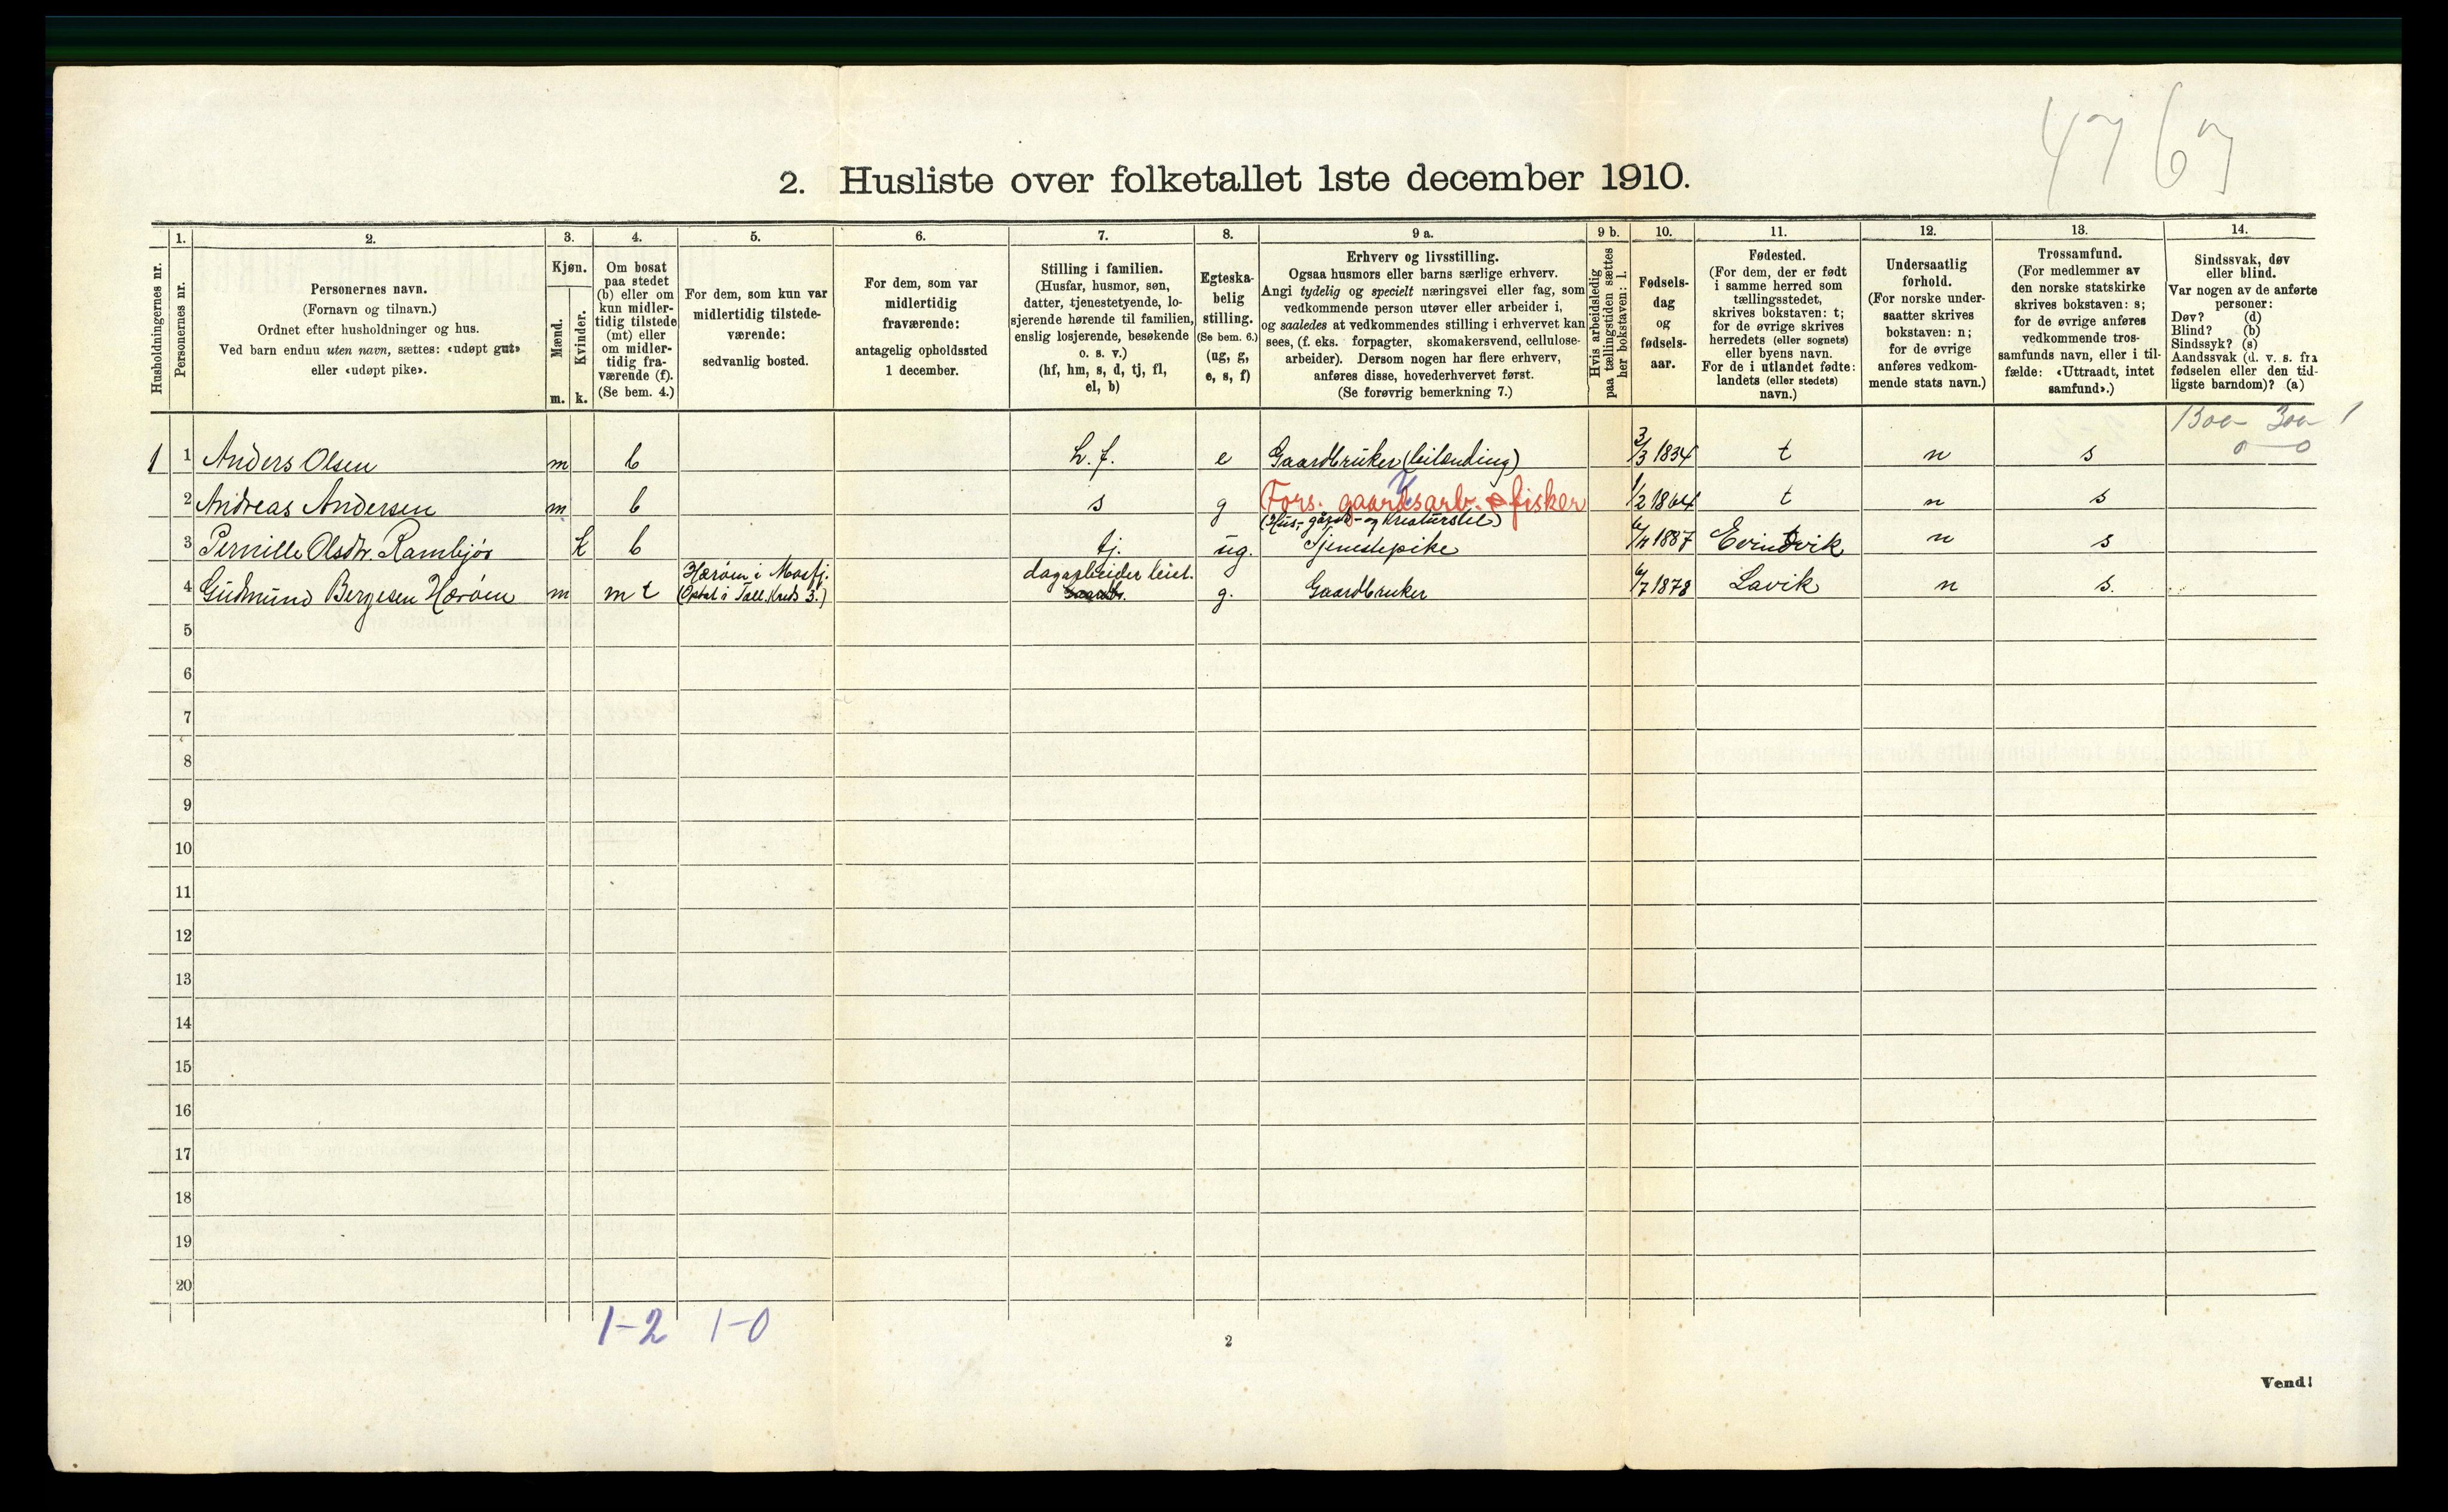 47 67
2. Husliste over folketallet 1ste december 1910.
Husholdningernes nr.
1. Personernes nr.
2. Personernes navn.
(Fornavn og tilnavn.)
Ordnet efter husholdninger og hus.
Ved barn endnu uten navn, sættes: «udøpt gut»
eller «udøpt pike».
3. Kjøn.
Mænd. Kvinder.
m. k.
4. Om bosat
paa stedet
(b) eller om
kun midler-
tidig tilstede
(mt) eller
om midler-
tidig fra-
værende (f).
(Se bem. 4.)
5. For dem, som kun var
midlertidig tilstede-
værende:
sedvanlig bosted.
6. For dem, som var
midlertidig
fraværende:
antagelig opholdssted
1 december.
7. Stilling i familien.
(Husfar, husmor, søn,
datter, tjenestetyende, lo-
sjerende hørende til familien,
enslig losjerende, besøkende
o. s. v.)
(hf, hm, s, d, tj, fl,
el, b)
8. Egteska-
belig
stilling.
(Se bem. 6.)
(ug, g,
e, s, f)
9 a. Erhverv og livsstilling.
Ogsaa husmors eller barns særlige erhverv.
Angi tydelig og specielt næringsvei eller fag, som
vedkommende person utøver eller arbeider i,
og saaledes at vedkommendes stilling i erhvervet kan
sees, (f. eks. forpagter, skomakersvend, cellulose-
arbeider). Dersom nogen har flere erhverv,
anføres disse, hovederhvervet først.
(Se forøvrig bemerkning 7.)
9 b. Hvis arbeidsledig
paa tællingstiden sættes
her bokstaven: l.
10. Fødsels-
dag
og
fødsels-
aar.
11. Fødested.
(For dem, der er født
i samme herred som
tællingsstedet,
skrives bokstaven: t;
for de øvrige skrives
herredets (eller sognets)
eller byens navn.
For de i utlandet fødte:
landets (eller stedets)
navn.)
12. Undersaatlig
forhold.
(For norske under-
saatter skrives
bokstaven: n;
for de øvrige
anføres vedkom-
mende stats navn.)
13. Trossamfund.
(For medlemmer av
den norske statskirke
skrives bokstaven: s;
for de øvrige anføres
vedkommende tros-
samfunds navn, eller i til-
fælde: «Uttraadt, intet
samfund».)
14. Sindssvak, døv
eller blind.
Var nogen av de anførte
personer:
Døv? (d)
Blind? (b)
Sindssyk? (s)
Aandssvak (d. v. s. fra
fødselen eller den tid-
ligste barndom)? (a)
1300 - 300 - 1
0 - 0
1 1 Anders Olsen m b h.f. e Gaardbruker (leilænding) 3/3 1834 t n s
2 Andreas Andersen m b s g Fors. gaardsarb. & fisker 1/2 1864 t n s
3 Pernille Olsdtr. Rambjør k b tj. ug. (Hus-, gårds- og kreaturstel) Tjenestepike 1887 Evindvik n s
4 Gudmund Bergesen Herøen m mt Herøen i Masfj. (Optat i Tæll. Kreds 3.) dagarbeider leiet. Gaardb. g. Gaardbruker 6/7 1878 Lavik n s.
5
6
7
8
9
10
11
12
13
14
15
16
17
18
19
20
1-2 1-0
2
Vend!